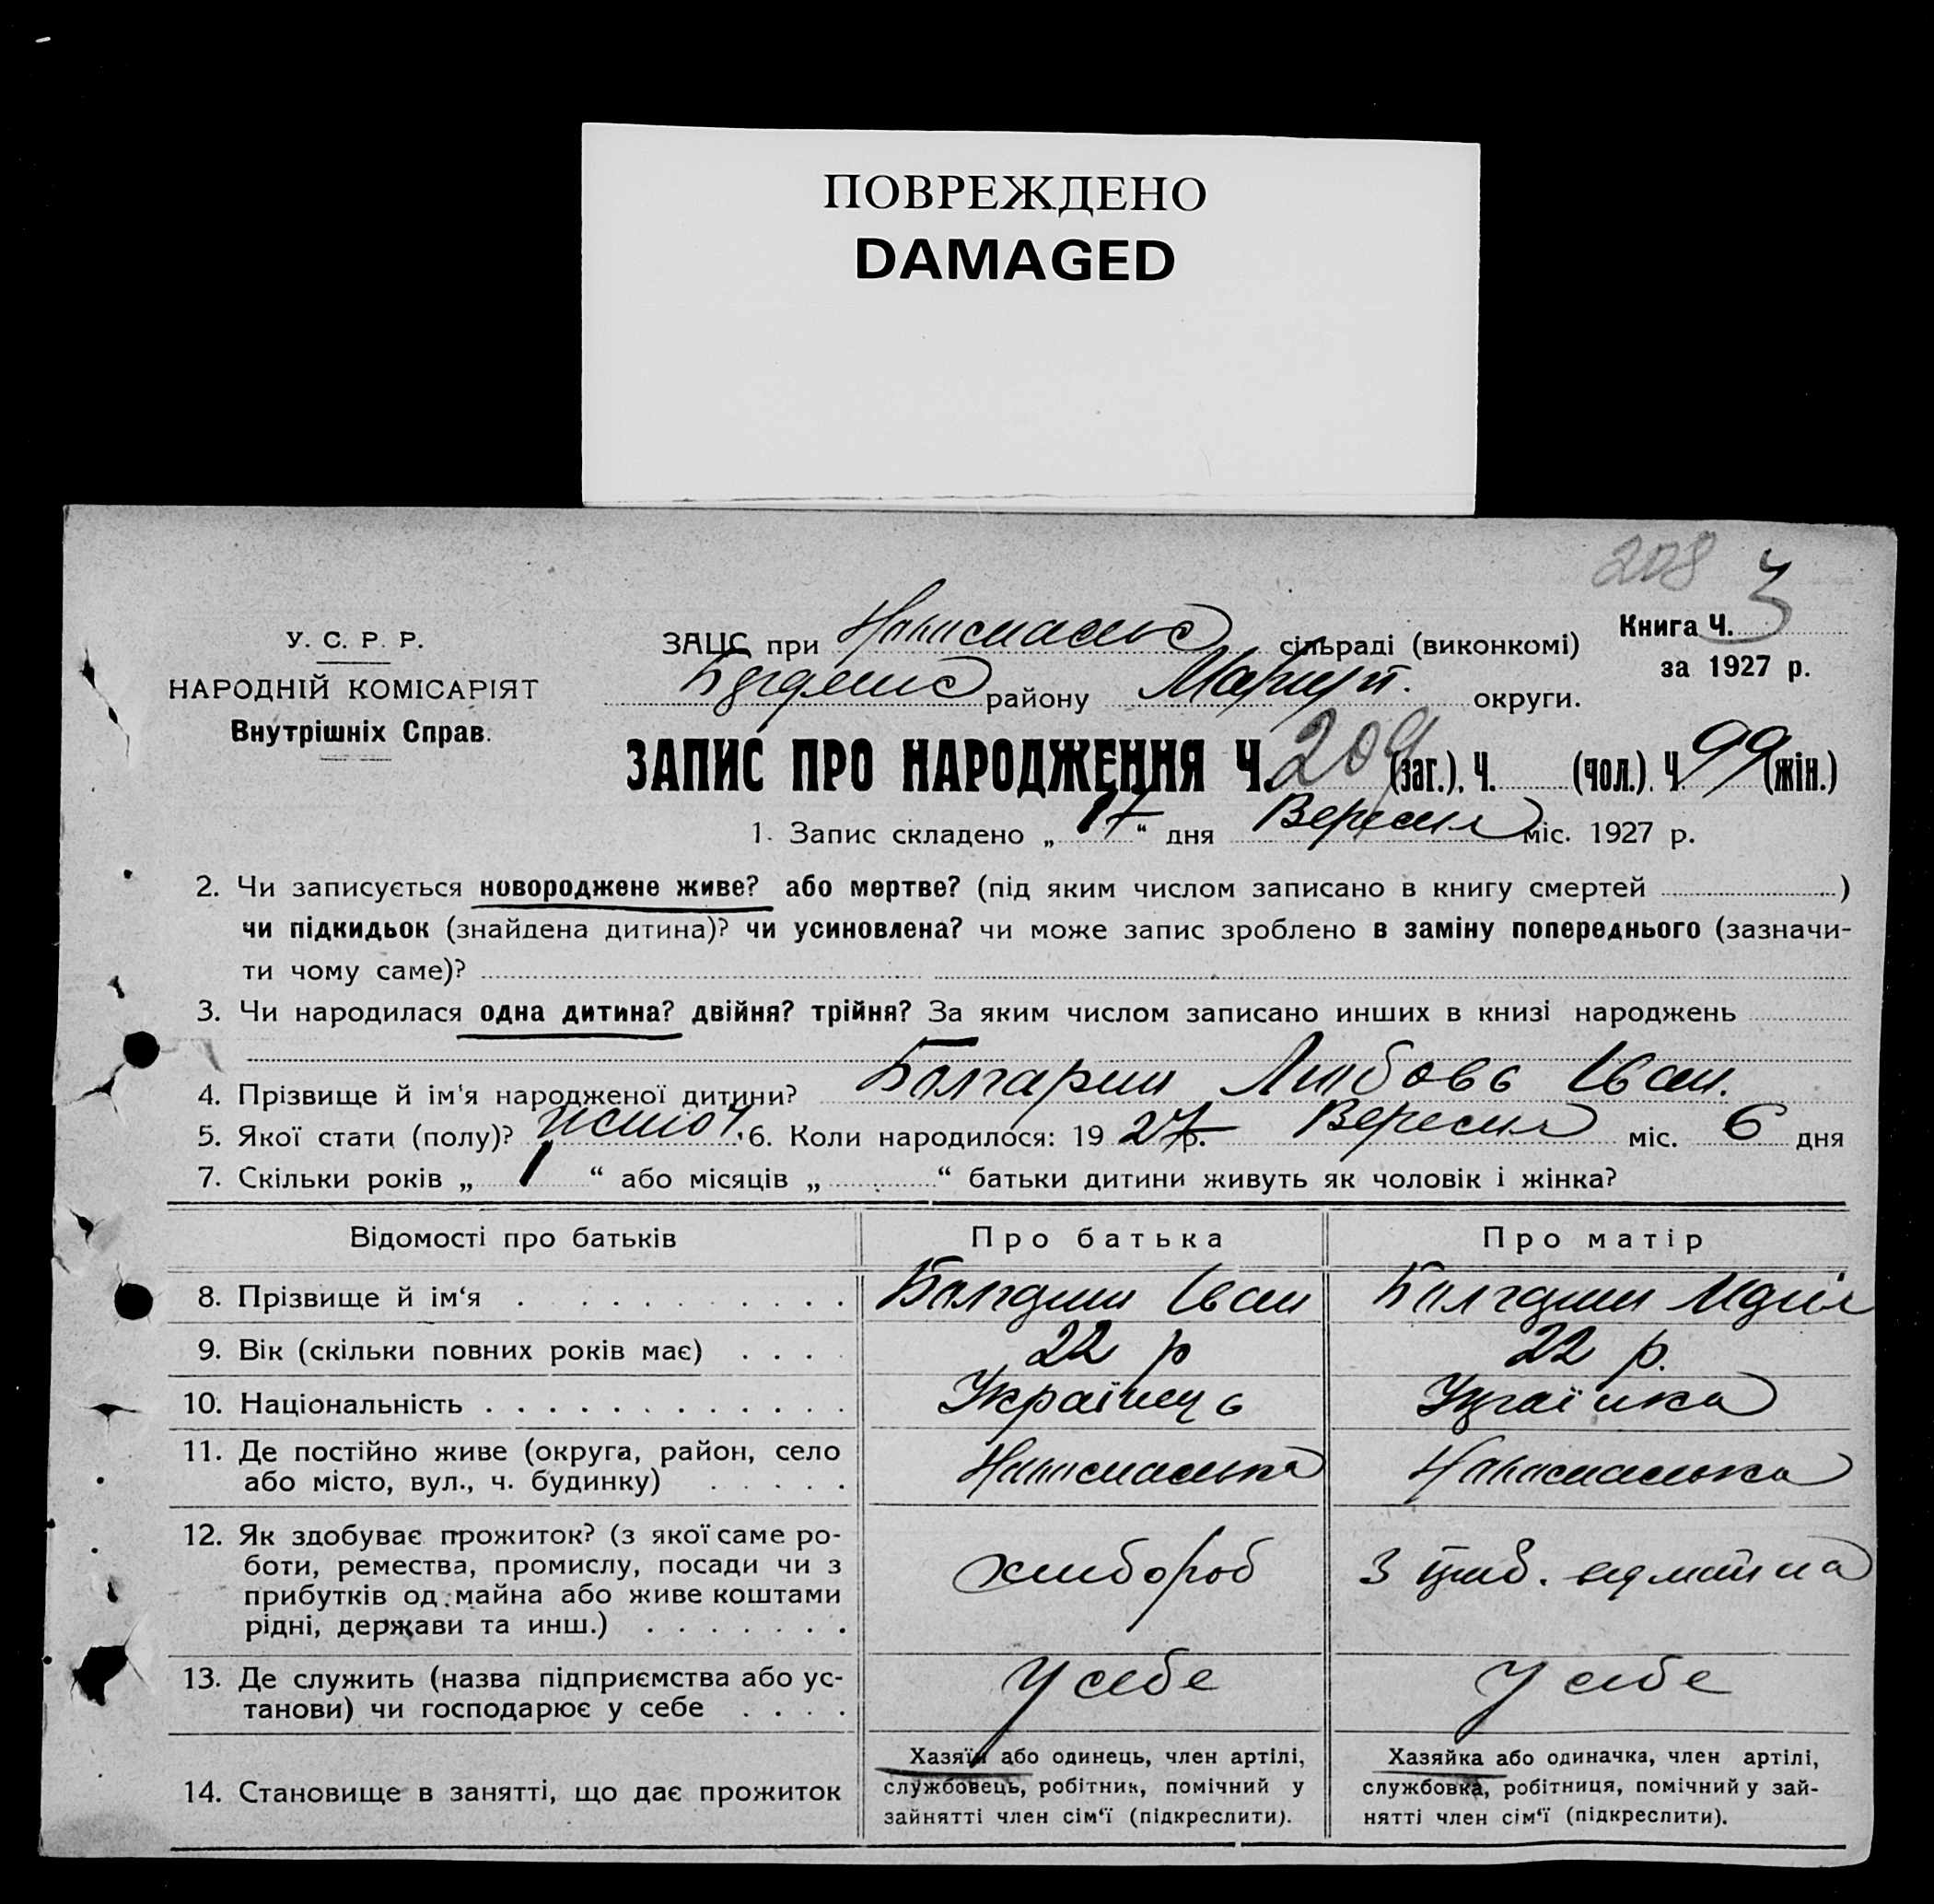 ПОВРЕЖДЕНО
DAMAGED
208
Книга Ч. 3
за 1927 р.
У. С. Р. Р.
НАРОДНІЙ КОМІСАРІЯТ
Внутрішніх Справ.
ЗАЦС при сільраді (виконкомі)
району Маріуп. округи.
ЗАПИС ПРО НАРОДЖЕННЯ Ч. 209 (заг.). Ч. (чол.). Ч. 99 (жін.)
1. Запис складено „ 17 “ дня Вересня міс. 1927 р.
2. Чи записується новороджене живе? або мертве? (під яким числом записано в книгу смертей )
чи підкидьок (знайдена дитина)? чи усиновлена? чи може запис зроблено в заміну попереднього (зазначи-
ти чому саме)?
3. Чи народилася одна дитина? двійня? трійня? За яким числом записано инших в книзі народжень
4. Прізвище й ім'я народженої дитини? Болгарин Любовь Іван.
5. Якої стати (полу)? жіноч. 6. Коли народилося: 1927 р. Вересня міс. 6 дня
7. Скільки років „ 1 “ або місяців „ “ батьки дитини живуть як чоловік і жінка?
Відомості про батьків Про батька Про матір
8. Прізвище й ім‘я . . . . . . . . . . Болгарин Іван Болгарин
9. Вік (скільки повних років має) . . . . 22 р 22 р.
10. Національність . . . . . . . . . . . . Українець Українка
11. Де постійно живе (округа, район, село
або місто, вул., ч. будинку) . . . . .
12. Як здобуває прожиток? (з якої саме ро-
боти, ремества, промислу, посади чи з
прибутків од майна або живе коштами
рідні, держави та инш.) . . . . . . . хлібороб З
13. Де служить (назва підприємства або ус-
танови) чи господарює у себе . . . . У себе У себе
14. Становище в занятті, що дає прожиток
Хазяїн або одинець, член артілі,
службовець, робітник, помічний у
зайнятті член сім‘ї (підкреслити).
Хазяйка або одиначка, член артілі,
службовка, робітниця, помічний у зай-
нятті член сім‘ї (підкреслити).